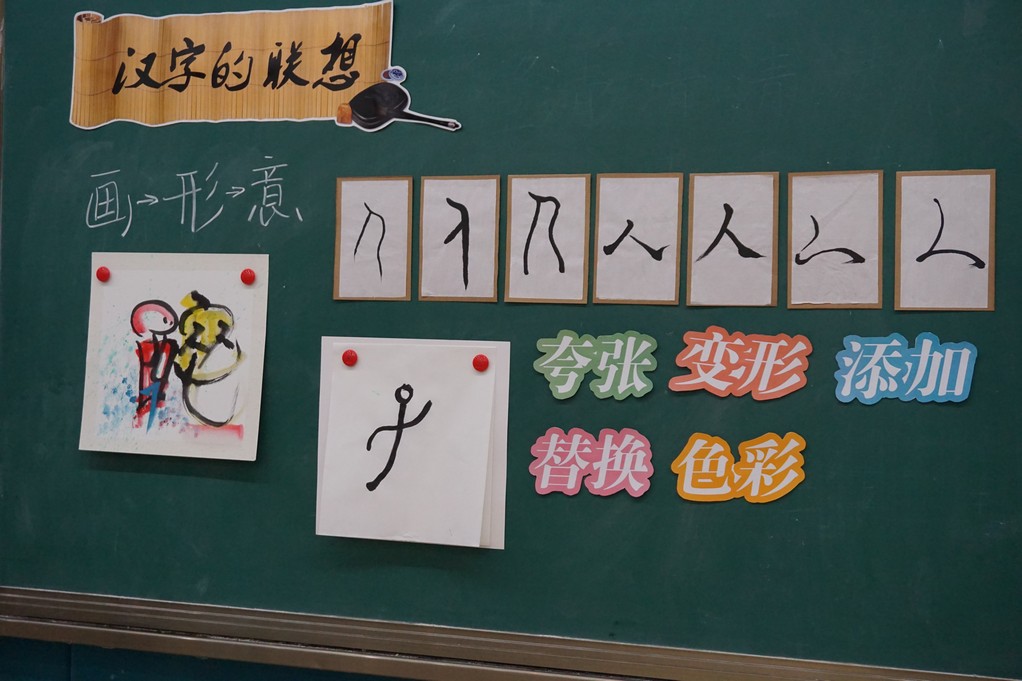 汉字的联想
画→形→意
人 人 人 人 人 人 人
夸张 变形 添加
替换 色彩